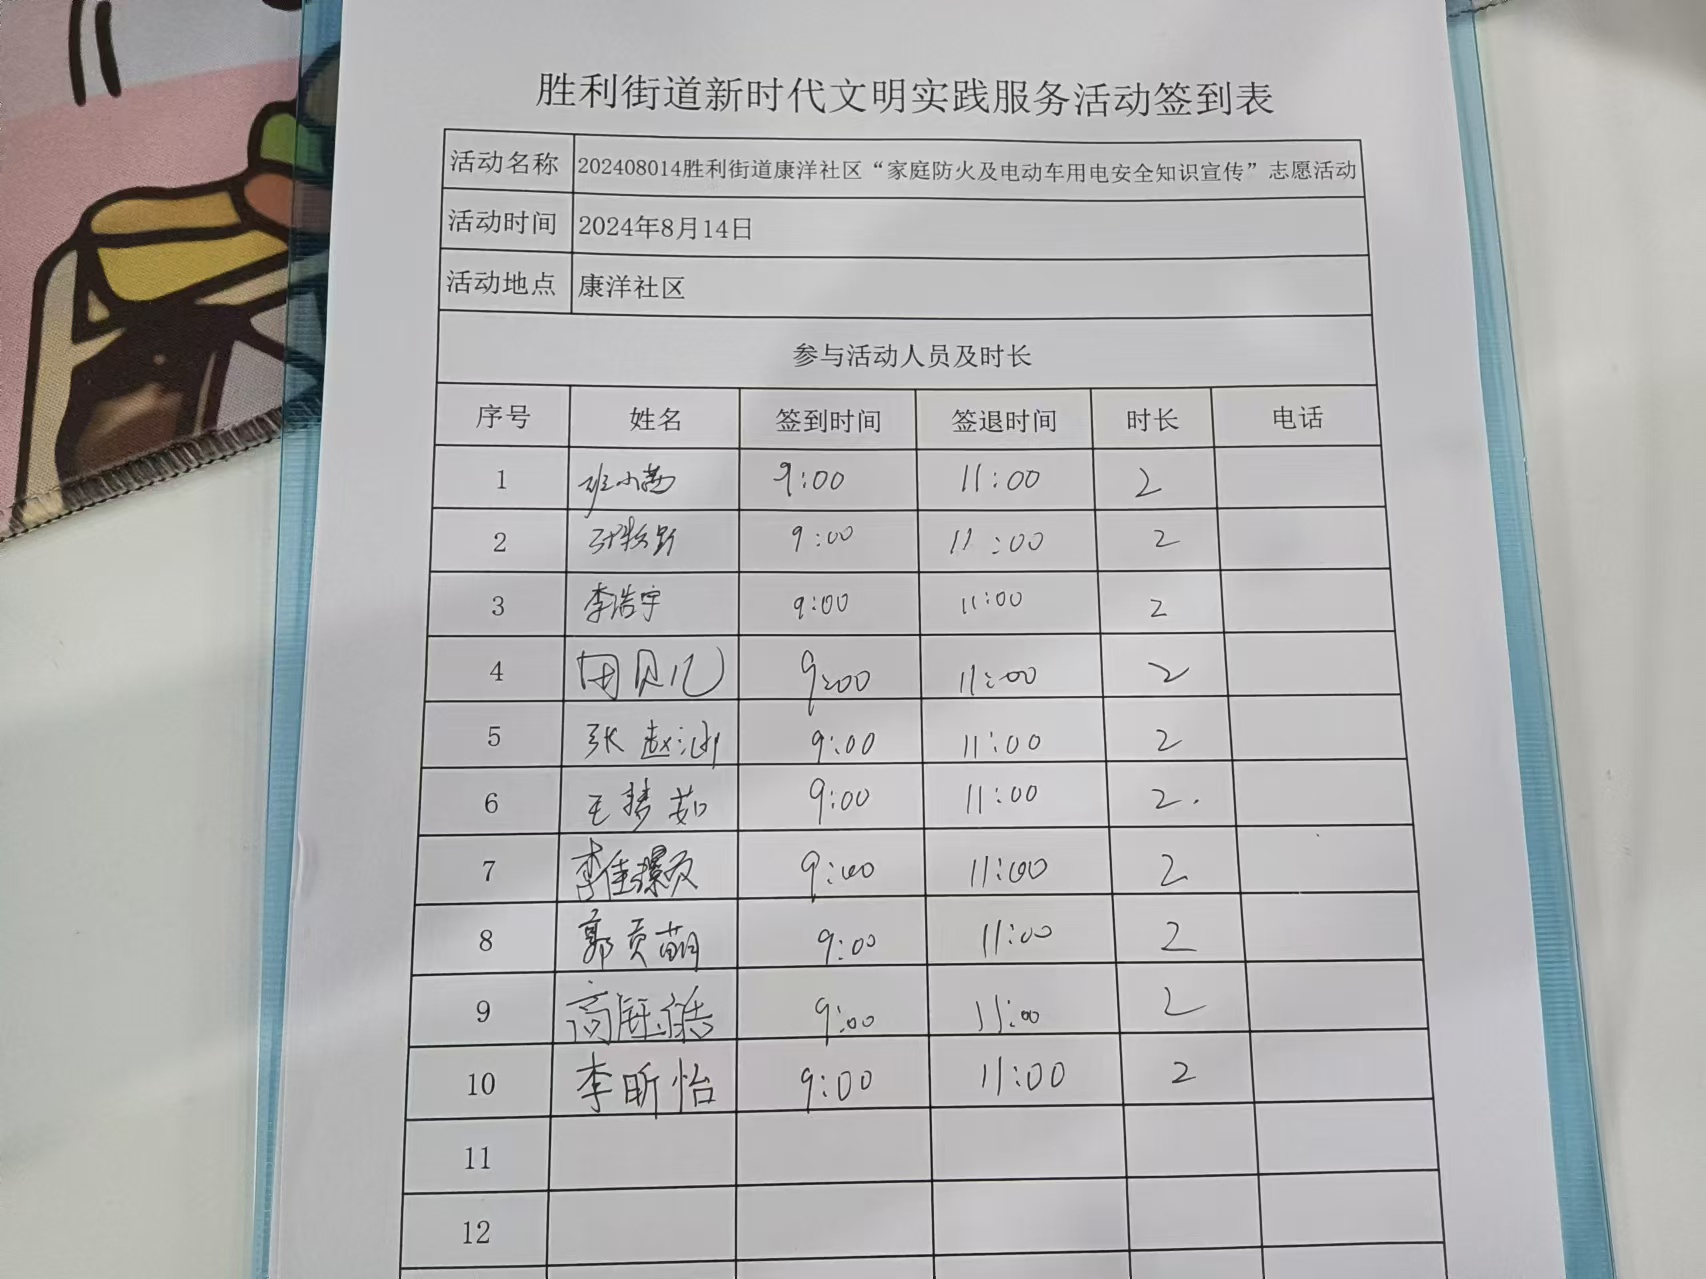 胜利街道新时代文明实践服务活动签到表
活动名称 202408014胜利街道康洋社区“家庭防火及电动车用电安全知识宣传”志愿活动
活动时间 2024年8月14日
活动地点 康洋社区
参与活动人员及时长
序号 姓名 签到时间 签退时间 时长 电话
1 9:00 11:00 2
2 9:00 11:00 2
3 李浩宇 9:00 11:00 2
4 贝儿 9:00 11:00 2
5 张赵 9:00 11:00 2
6 王梦茹 9:00 11:00 2.
7 李佳 9:00 11:00 2
8 郭贡萌 9:00 11:00 2
9 高 9:00 11:00 2
10 李昕怡 9:00 11:00 2
11
12